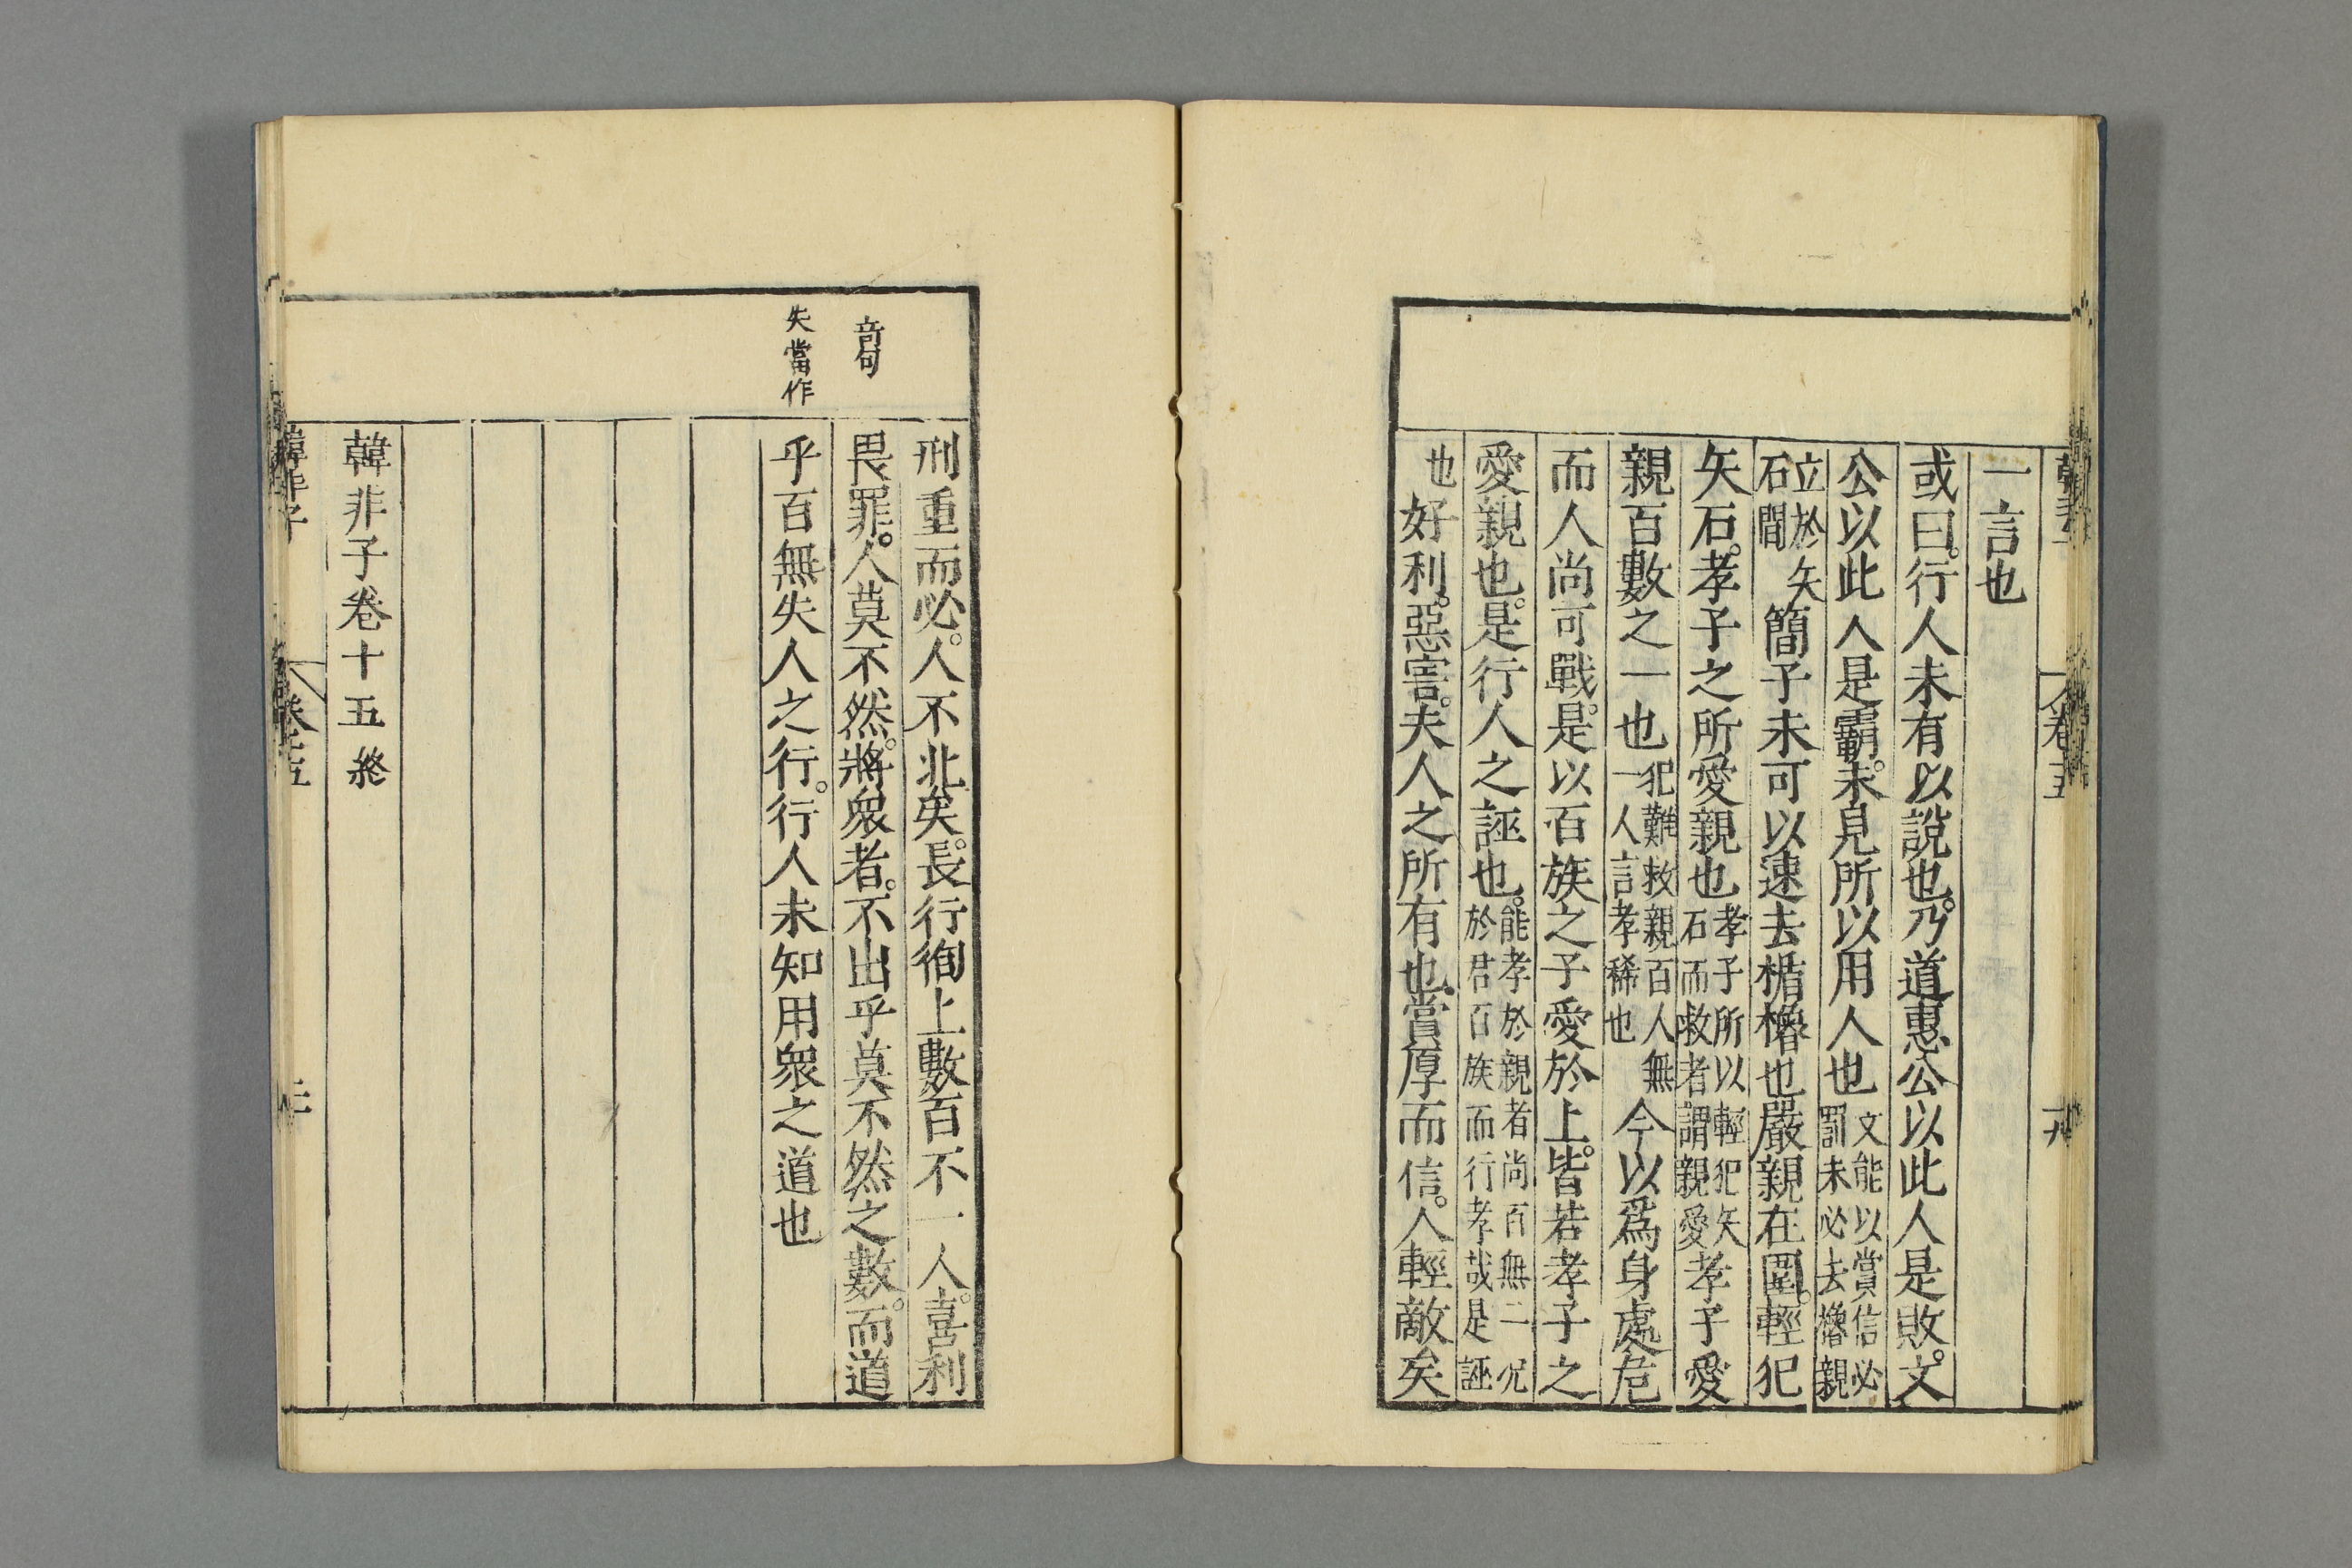 一言也
或曰。行人未有以說也。乃道惠公以此人是敗。文
公以此人是霸。未見所以用人也文能以賞信必罰未必去櫓親
立於矢石間簡子未可以速去楯櫓也嚴親在圍。輕犯
矢石。孝子之所愛親也孝子所以輕犯矢石而救者謂親愛孝子愛
親百數之一也犯難救親百人無一人言孝稀也今以爲身處危
而人尚可戰。是以百族之子愛於上。皆若孝子之
愛親也。是行人之誣也。能孝於親者尚百無一況於君百族而行孝哉是誣
也好利。惡害。夫人之所有也。賞厚而信。人輕敵矣
刑重而必。人不北矣。長行徇上數百不一人。喜利
畏罪。人莫不然。將衆者。不出乎莫不然之數。而道
乎百無失人之行。行人未知用衆之道也
音句
失當作
韓非子卷十五終
韓非子
卷十五